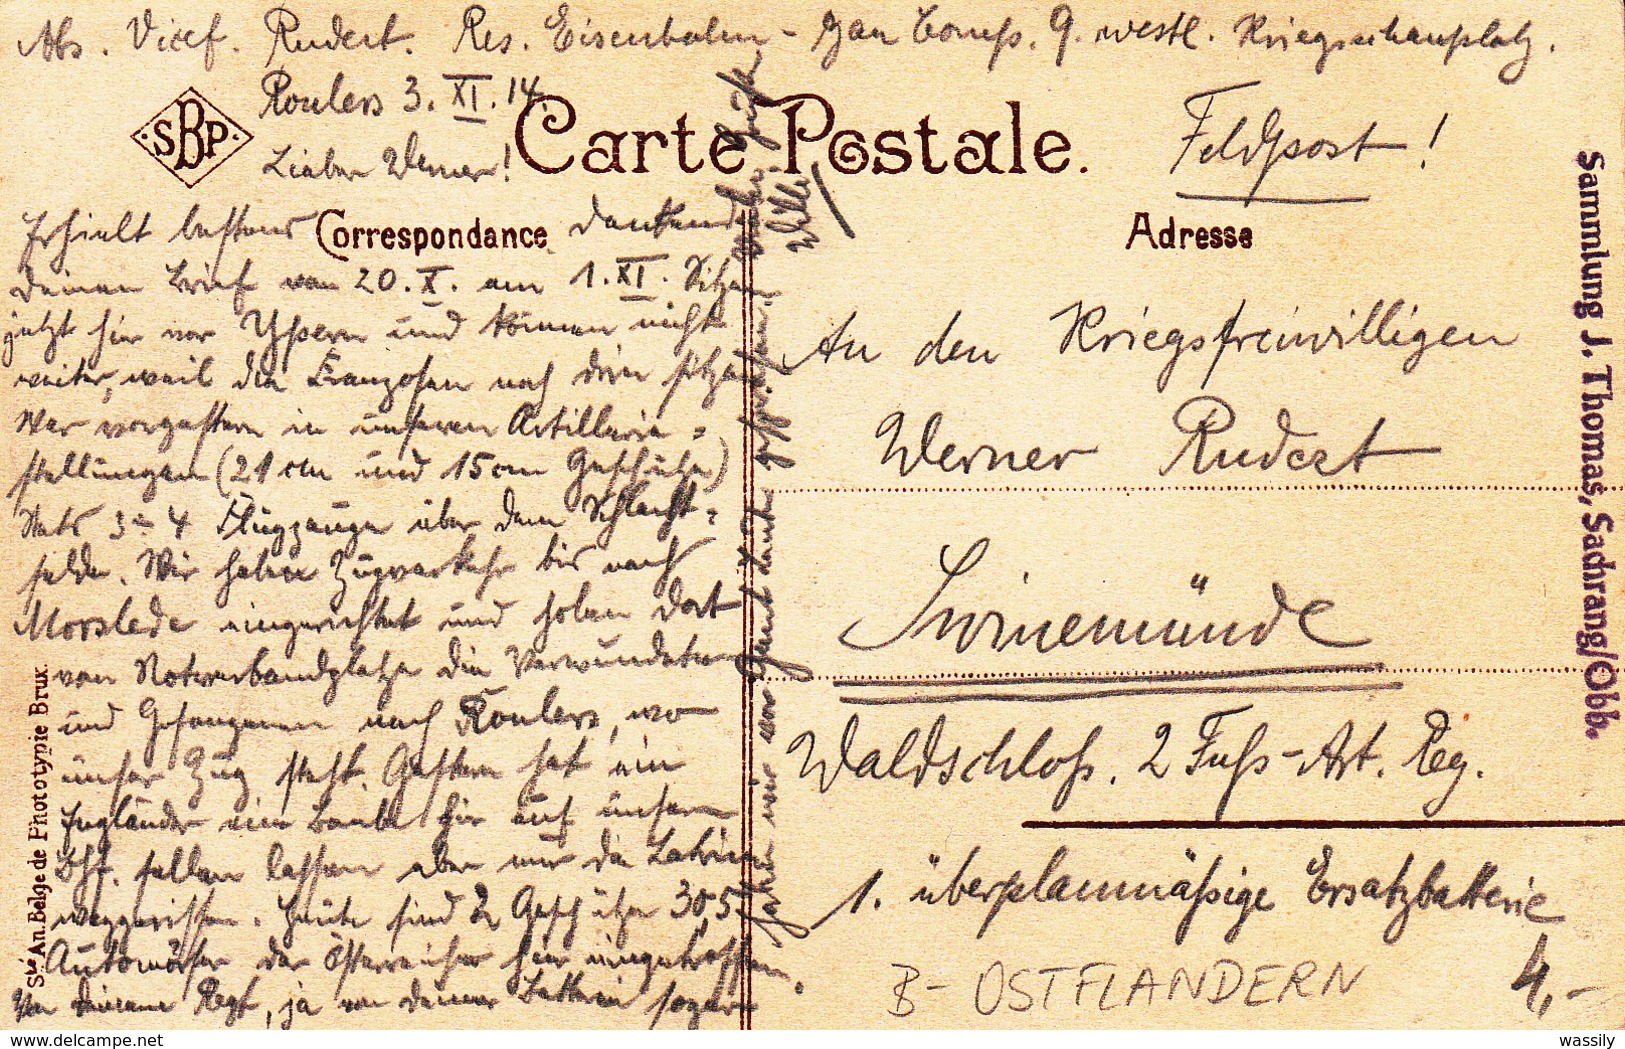 Abs. Vicef. Rudert. Res. Eisenbahn-Bau Comp. 9. westl. Kriegsschauplatz.
Roulers 3. XI. 14.
Lieber Werner!
SBP
Carte Postale.
Correspondance
Adresse
Erhielt bestens dankend
Deinen Brief vom 20. X. am 1. XI. Sitzen
jetzt hier vor Ypern und können nicht
weiter, weil die Franzosen noch drin sitzen
War vorgestern in unseren Artillerie=
stellungen (21 cm und 15 cm Geschütze)
Stets 3-4 Flugzeuge über dem Schlacht=
felde. Wir haben Zugverkehr bis nach
Morslede eingerichtet und holen dort
vom Notverbandplatze die Verwundeten
und Gefangenen nach Roulers, wo
unser Zug steht. Gestern hat ein
Engländer eine Bombe hier auf unsern
Bhf. fallen lassen aber nur die Latrine
weggerissen. Heute sind 2 Geschütze 30,5
Automörser der Österreicher hier eingetroffen.
Von Deinem Regt, ja von Deiner Batterie sogar
haben wir vor
Willi
Feldpost!
An den Kriegsfreiwilligen
Werner Rudert
Swinemünde
Waldschloß. 2 Fuß-Art. Reg.
1. überplanmäßige Ersatzbatterie
B- OSTFLANDERN
4,-
Sté An. Belge de Phototypie Brux.
Sammlung J. Thomas, Sachrang/Obb.
www.delcampe.net
wassily